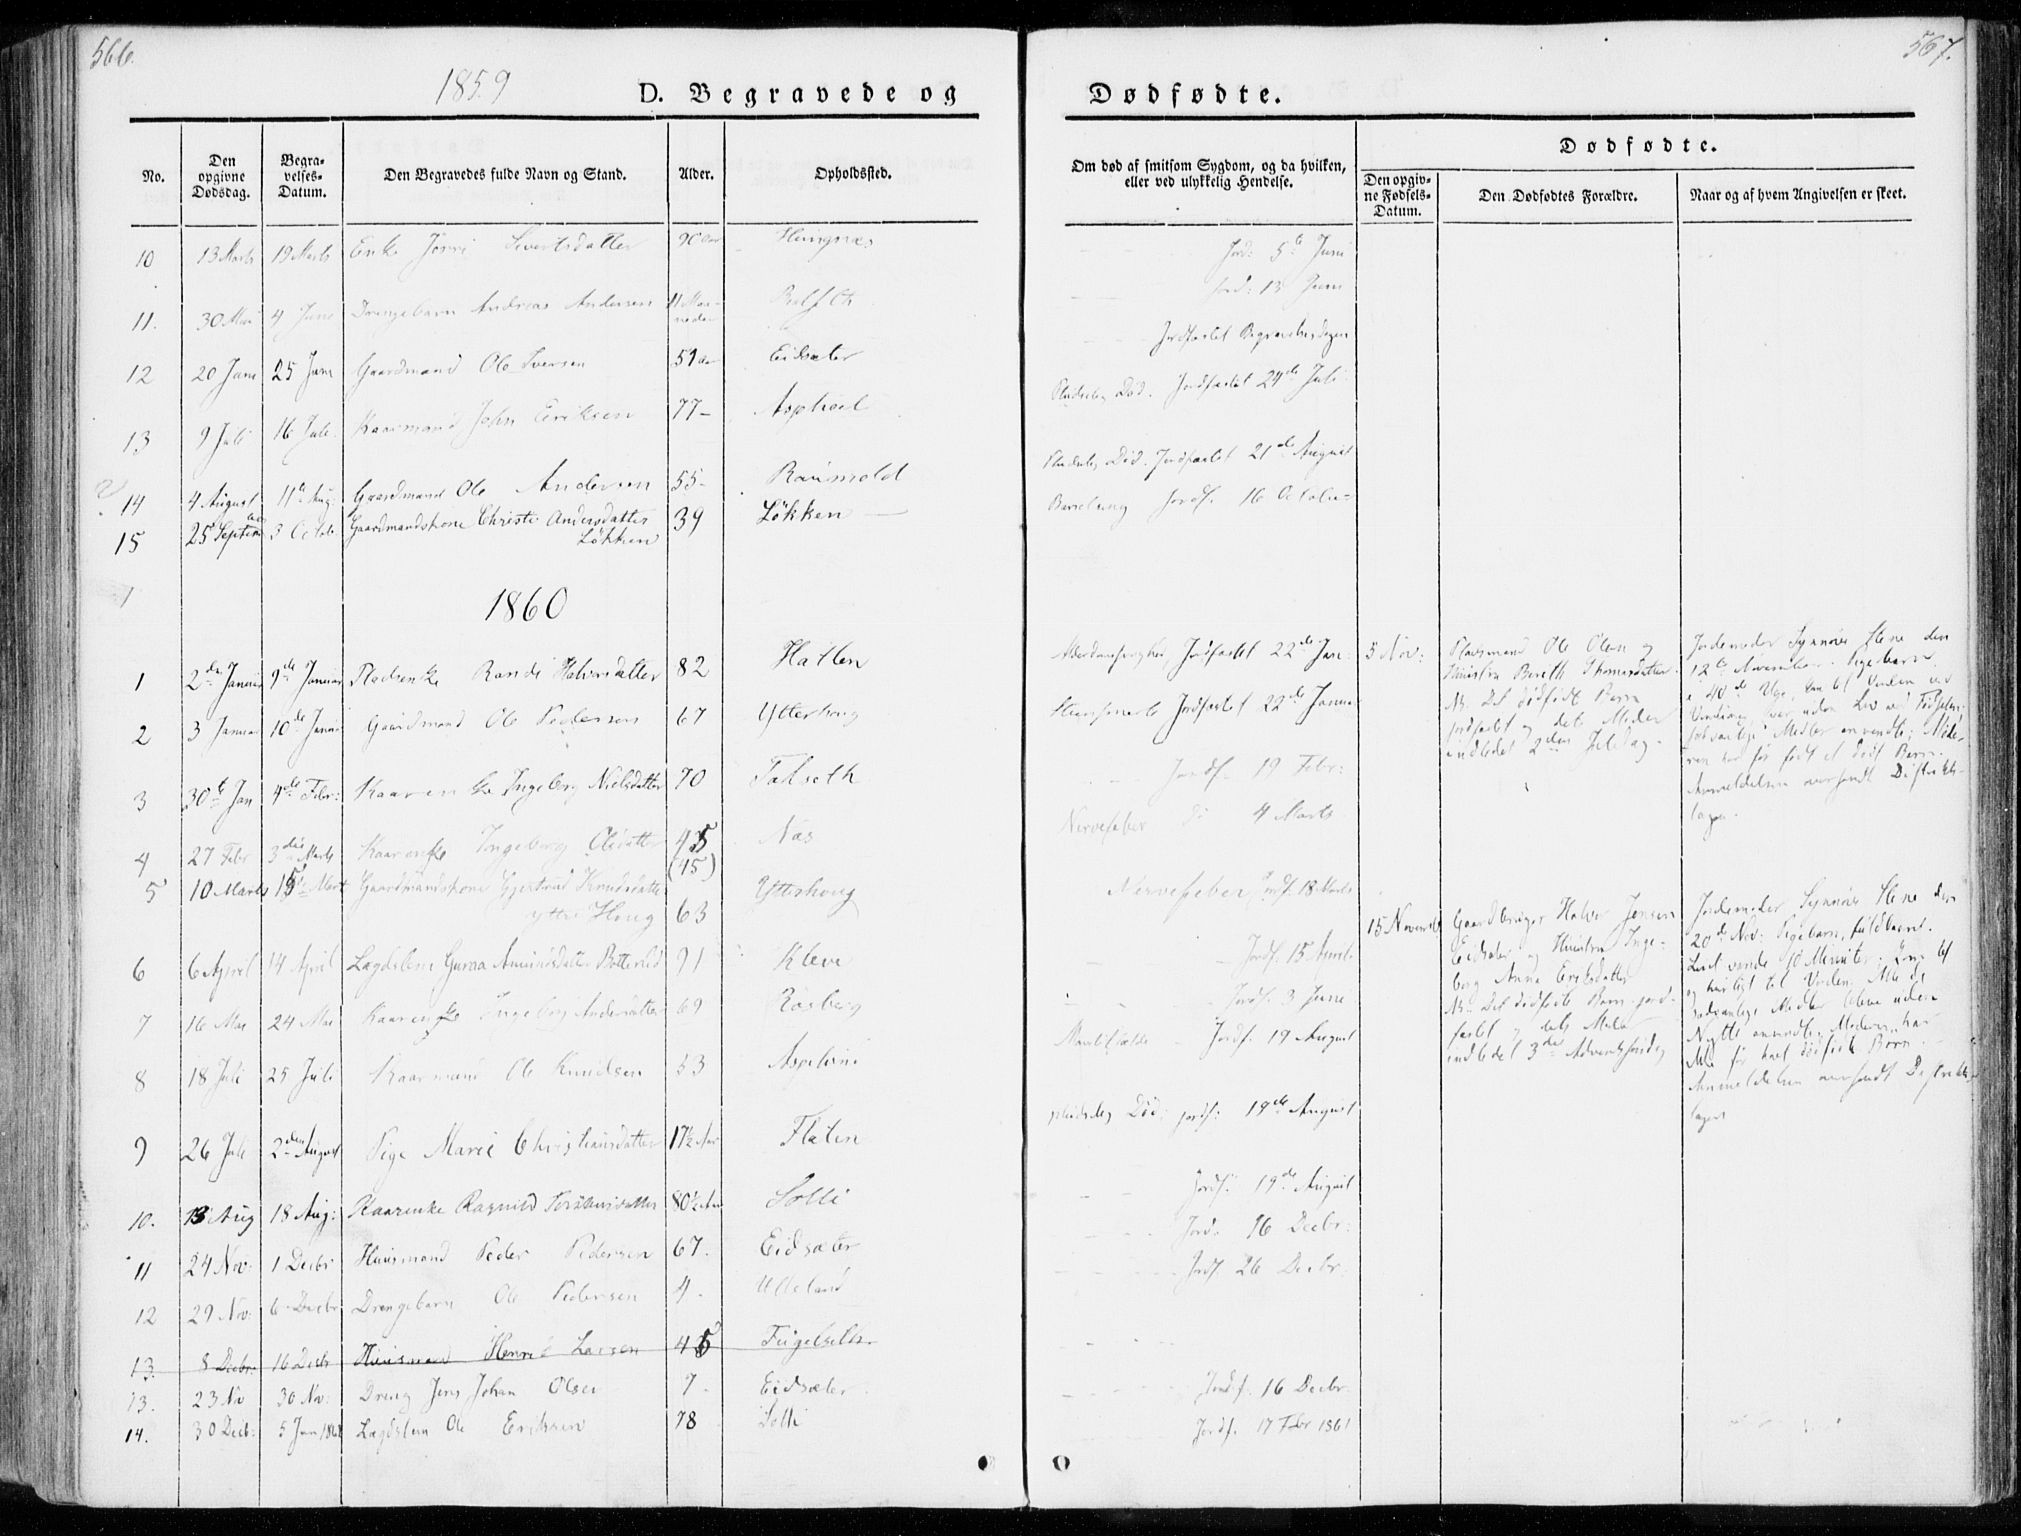 566.
567.
1859
D. Begravede og
Dødfødte.
No.
Den opgivne Dødsdag.
Begravelses-Datum.
Den Begravedes fulde Navn og Stand.
Alder.
Opholdssted.
Om død af smitsom Sygdom, og da hvilken,
eller ved ulykkelig Hendelse.
Dødfødte.
Den opgivne Fødsels-Datum.
Den Dødfødtes Forældre.
Naar og af hvem Angivelsen er skeet.
10 13 Marts 19 Marts Enke Sivertsdatter 90 Aar Jord: 5te Juni
11. 30 Mai 4 Juni Drengebarn Andreas Andersen 11 Maaneder Jord: 13 Juni
12 20 Juni 25 Juni Gaardmand Ole Iversen 51 Aar Eidsæter Jordfæstet Begravelsesdagen
13 9 Juli 16 Juli Kaarmand John Eriksen 77 - Asphoel Pludselig Død. Jordfæstet 24de Juli
14 4 August 11te Aug. Gaardmand Ole Andersen 55 - Pludselig Død. Jordfæstet 21de August
15 25 September 3 Octob. Gaardmandskone Christi Andersdatter 39 Løkken - Barselseng Jordf. 16 October
Løkken
1860
1 2den Januar 9de Januar Randi Halvorsdatter 82 Hatlen Jordfæstet 22de Jan:
2 3 Januar 10de Januar Gaardmand Ole Pedersen 67 Ytterhoug Jordfæstet 22de Januar
3 30te Jan 4de Febr: Kaarenke Ingeborg Nielsdatter 70 Talseth Jordf. 19 Febr:
4 27 Febr 3die Marts Kaarenke Ingeborg Olsdatter 45 (45) Næs Nervefeber do 4 Marts
5 10 Marts 15de Mart Gaardmandskone Gjertrud Knudsdatter Ytterhoug Nervefeber Jordf. 18 Marts
ytter Houg 63
6 6 April 14 April Lægdslem Guraa Amundsdatter 91 Kleve Jordf. 15 April
7 16 Mai 24 Mai Kaarenke Ingeborg Andersdatter 69 Røsberg Jordf. 3 Juni
8 18 Juli 25 Juli Kaarmand Ole Knudsen 53 Jordf. 19 August
9 26 Juli 2den August Pige Marie Christiansdatter 17½ Aar Flaten pludselig Død: jordf: 19de August
10. 13 Aug 18 Aug: Kaarenke Ragnild 80½ Aar Solli Jordf: 19de August
11 24 Nov: 1 Decbr Huusmand Peder Pedersen 67. Eidsæter Jord. 16 Decbr:
12 29 Nov: 6 Decbr Drengebarn Ole Pedersen 4. Ulleland Jordf. 26 Decbr.
13. 8 Decbr: 16 Decbr Huusmand Henrik Larsen 45
13. 23 No 30 Nov: Dreng Jens Johan Olsen 7. Eidsæter Jordf. 16 Decbr.
14. 30 Decbr: 5 Jan 1861 Lægdslem Ole Eriksen 78 Solli Jordf. 17 Febr 1861
3 Nov:
Ole Olsen og
Hustru Bereth Thomasdatter.
NB. Det dødfødte Barn
jordfæstet og dets Moder
indledet 2den Juledag.
Jordemoder Synnøve Stene den
12te November. Pigebarn
i 40de Uge, kom til Verden
uden Liv
Midler anvendte; Moderen
har før født et dødt Barn.
Anmeldelsen oversendt Distrikts-
lægen.
15 Novemb
Gaardbruger Halvor Jensen
Eidsæter og Hustru Inge-
borg Anna Eriksdatter
NB. Det dødfødte Barn jord-
fæstet og dets Moder
indledet 3die Adventssøndag
Jordemoder Synnøve Stene den
20de Nov: Pigebarn, fuldbaaret.
10 Minuter. Kom
og hurtigt til Verden. Alle de
sædvanlige Midler bleve uden
Nytte anvendte. Moderen har
ikke før havt dødfødte Børn.
Anmeldelsen oversendt Distrikts-
lægen